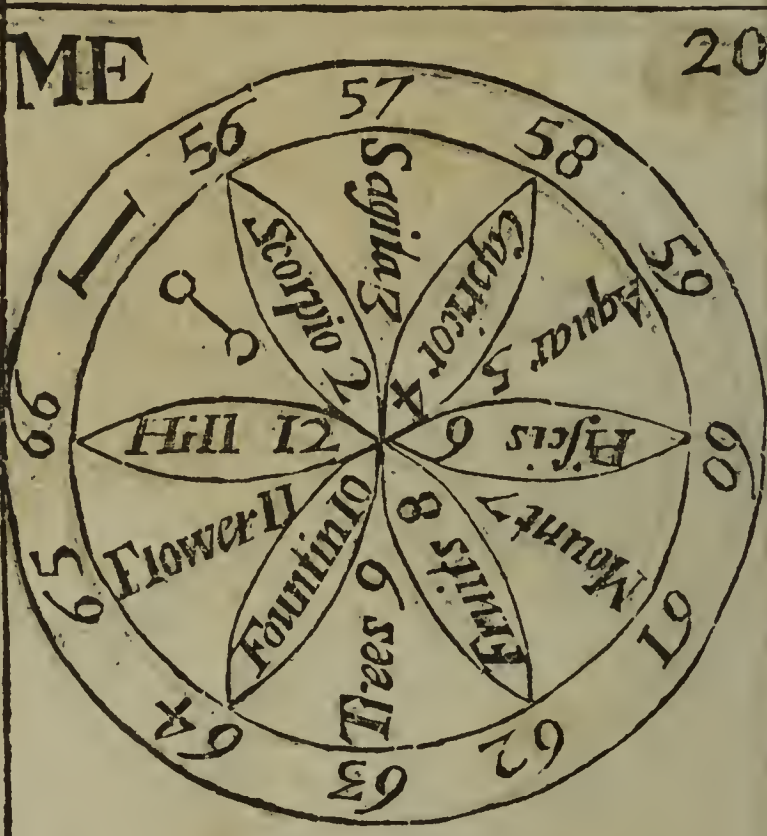 ME
20
56
57
58
59
60
61
62
63
64
65
66
I
Scorpio 2
Sagita 3
Capricor 4
Aquar 5
Piſcis 6
Mount 7
Fruits 8
Trees 9
Fountin 10
Flower 11
Hill 12